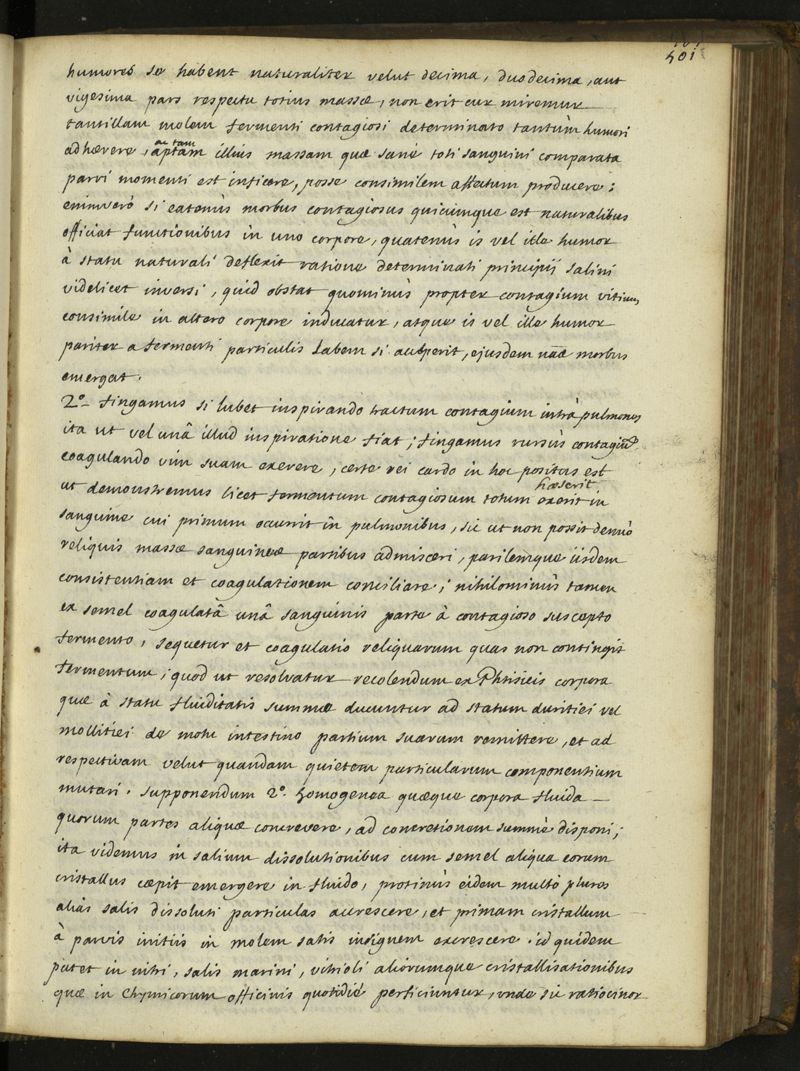 501
humores se habent naturaliter velut decima, duodecima, aut
vigesima pars respectu totius massæ, non erit cur miremur
tantillam molem fermenti contagiosi determinato tantùm humori
adhærere, aptam illius massam quæ sanè toti sanguini comparata
parvi momenti est inficere, posse consimilem affectum producere;
enimverò si eatenùs morbus contagiosus quicumque est naturalibus
officiat functionibus in uno corpore, quatenùs is vel ille humor
à statu naturali deflexit ratione determinati principij salini
videlicet inversi, quid obstat quominùs propter contagium vitium
consimile in altero corpore inducatur, atque is vel ille humor
pariter a fermenti particulis labem si acceperit, ejusdem naæ morbus
emergat.
2.° fingamus si lubet inspirando tractum contagium intrà pulmones
ita ut vel unâ illud inspiratione fiat; fingamus rursùs contagiũ
coagulando vim suam exerere, certe rei cardo in hoc positus est
hæserit
ut demonstremus licet fermentum contagiosum totum exerit in
sanguine cui primum occurrit in pulmonibus, sic ut non possit denuò
reliquis massæ sanguineæ partibus admisceri, parilemque iisdem
consistentiam et coagulationem conciliare; nihilominùs tamen
ex semel coagulatâ unâ sanguinis parte à contagioso suscepto
fermento, sequetur et coagulatio reliquarum quas non contingit
fermentum; quod ut resolvatur recolendum ex Phisicis corpora
quæ à statu fluiditatis summæ ducuntur ad statum duritiei vel
mollitiei de motu intestino partium suarum remittere, et ad
respectivam velut quandam quietem particularum componentium
mutari. supponendum 2.° homogenea quæque corpora fluida
quorum partes aliquæ concrevere, ad concretionem summè disponi;
ita videmus in salium dissolutionibus cum semel aliqua eorum
cristallus cæpit emergere in fluido, protinùs eidem multò plures
aliàs salis dissoluti particulas accrescere, et primam cristallum
à parvis initiis in molem satis insignem excrescere. id quidem
patet in nitri, salis marini, vitrioli aliorumque cristallisationibus
quæ in Chymicorum officinis quotidiè perficiuntur, unde sic ratiocinor